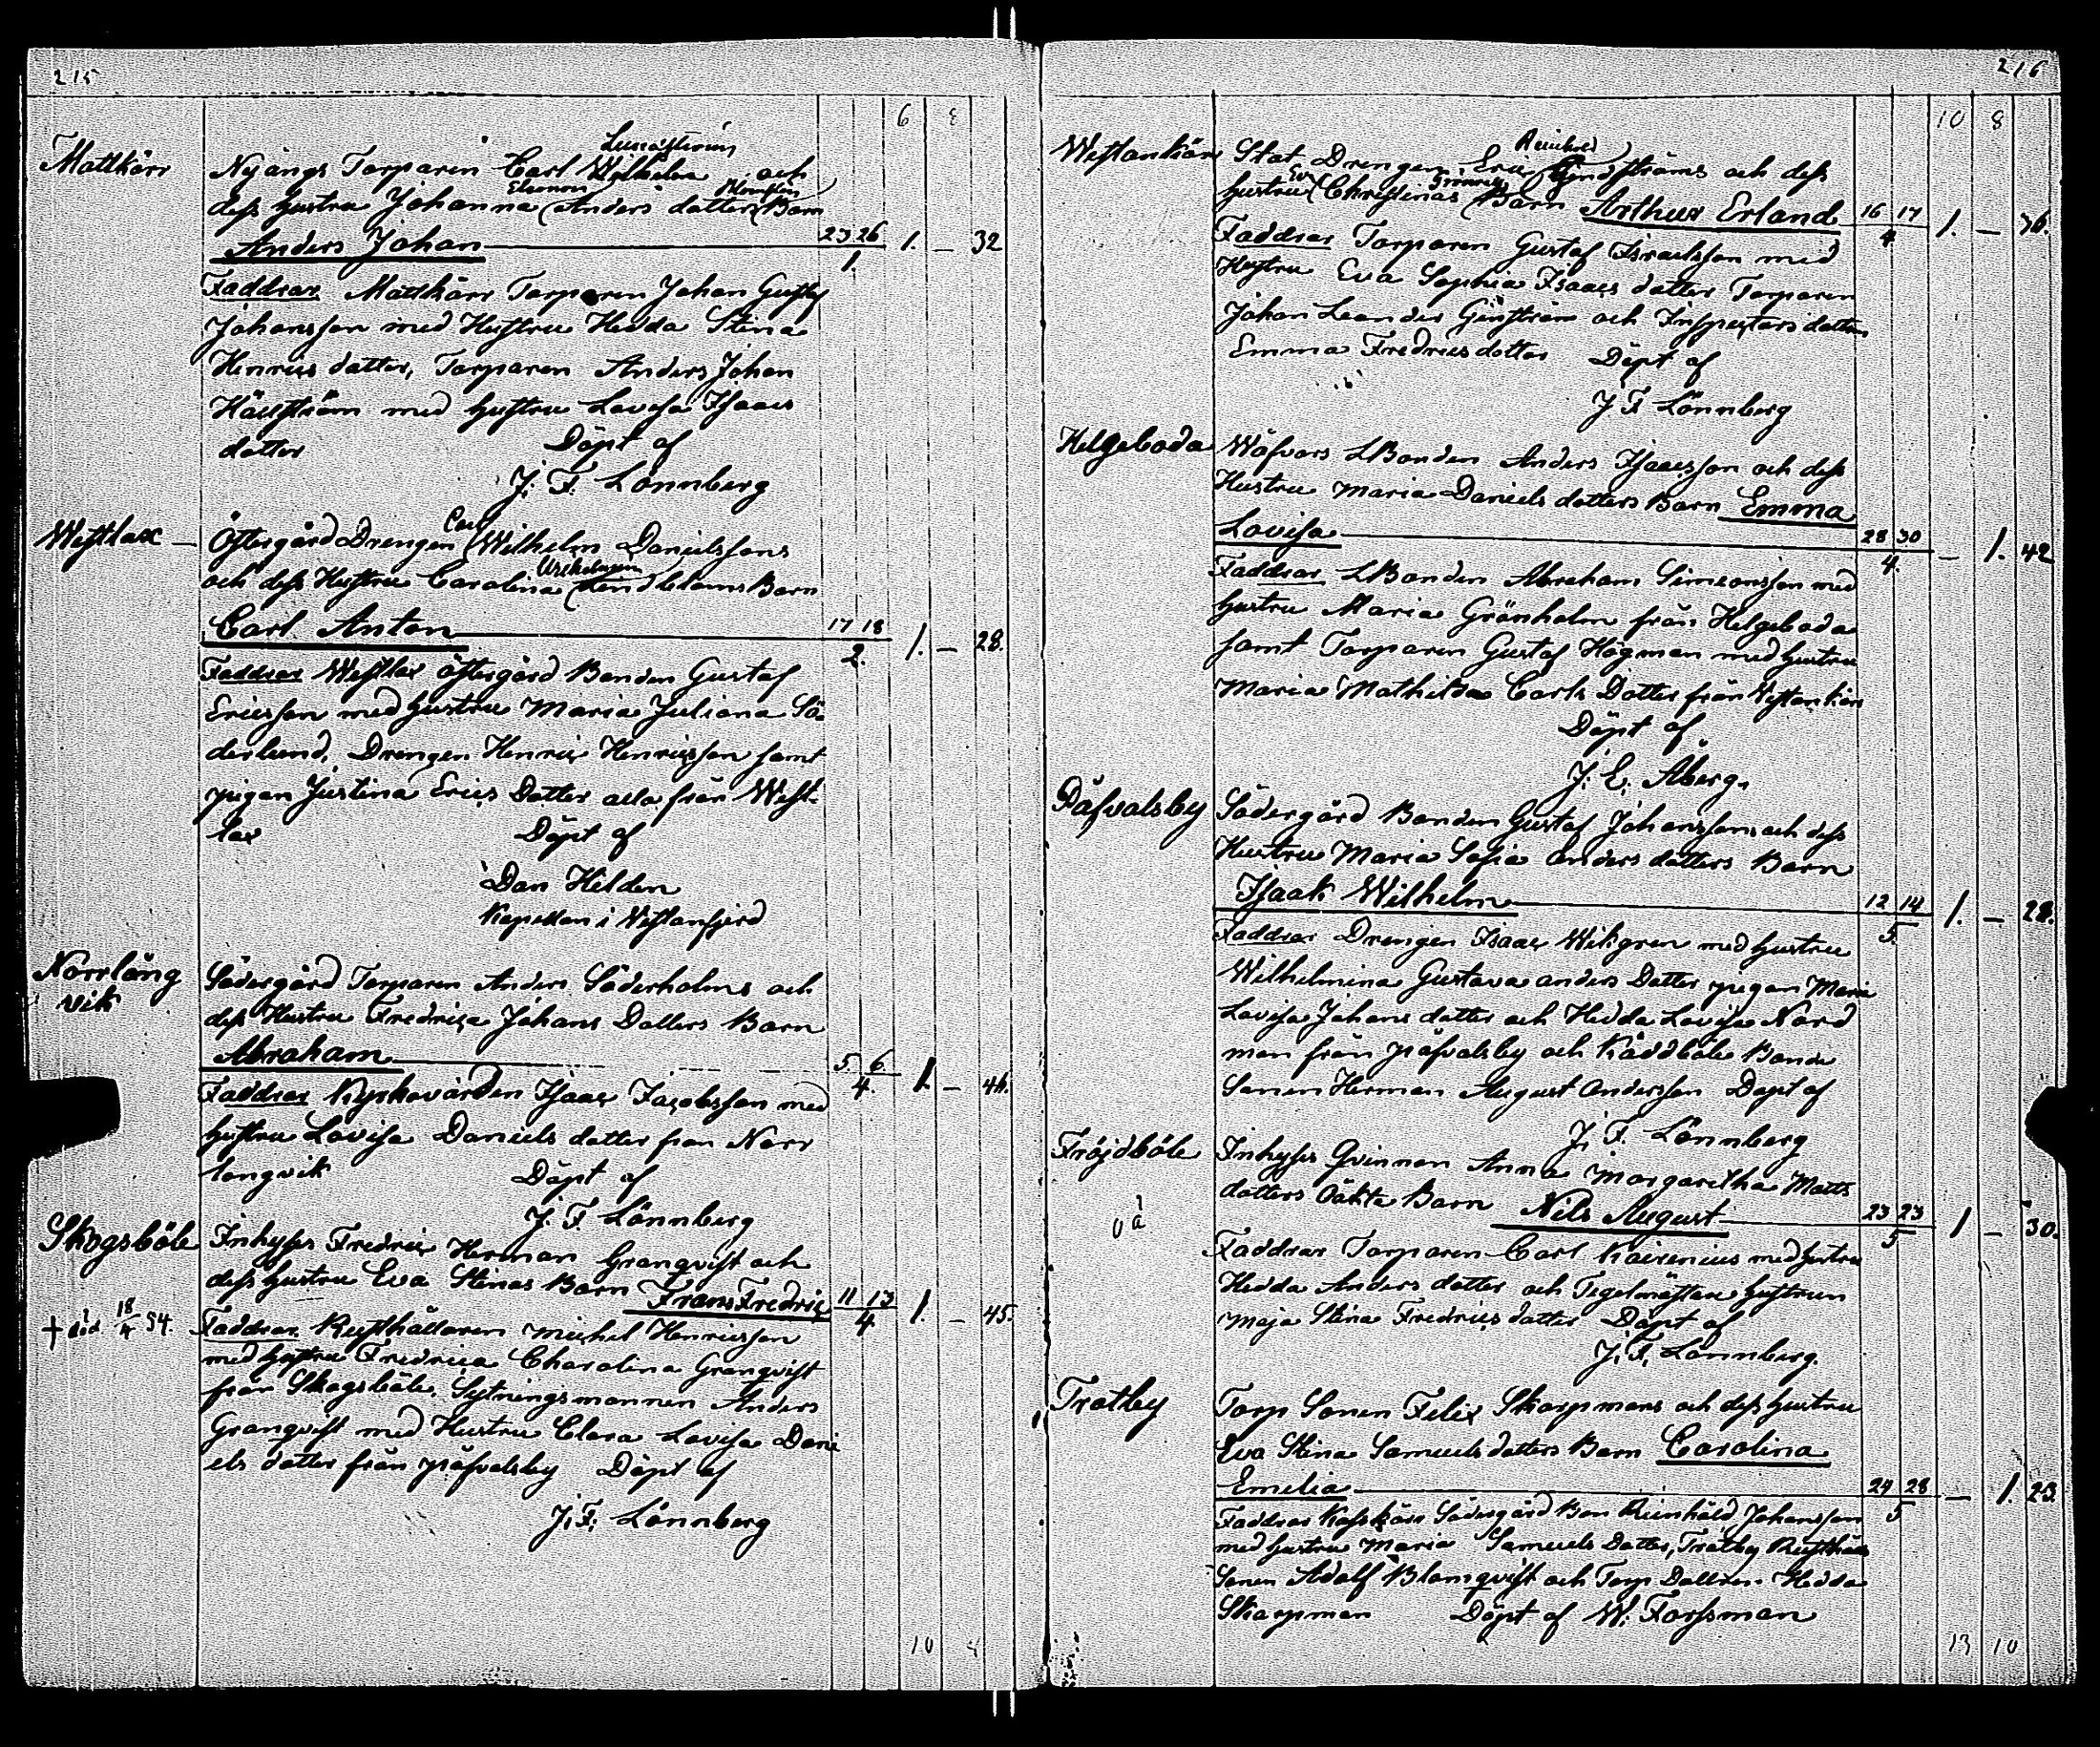 215
6 8
Mattkärr
Nyängs Torparen Carl Wilhelm och
dess hustru Johanna Eleonora Anders dotter Barn
Anders Johan 23 26 1. 1. — 32
Faddrar Mattkärr Torparen Johan Gustaf
Johansson med Hustru Hedda Stina
Henrics dotter, Torparen Anders Johan
Hällström med hustru Lovisa Isaacs
dotter Döpt af
J. F. Lönnberg
Westlax — Östergård Drengen Carl Wilhelm Danielssons
och dess Hustru Carolina Wilhelmina Lindbloms Barn
Carl Anton 17 18 2. 1. — 28.
Faddrar Westlax Östergård Bonden Gustaf
Ericsson med hustru Maria Juliana Sö-
derlund, Drengen Henric Henricsson samt
pigan Justina Erics Dotter alla från West-
lax Döpt af
Dan Helden
Kapellan i Westanfjerd
Norrlång
vik
Södergård Torparen Anders Söderholms och
dess Hustru Fredrica Johans Dotters Barn
Abraham 5. 6. 4. 1. — 46.
Faddrar Kyrkovärden Isaac Jacobsson med
hustru Lovisa Daniels dotter från Norr
langvik Döpt af
J. F. Lönnberg
Skogsböle Inhyses Fredric Herman Granqvist och
dess hustru Eva Stinas Barn Frans Fredric 11 13 4. 1. — 45.
† död 18/4 54.
Faddrar Rusthållaren Michel Henricsson
med hustru Fredrica Charolina Granqvist
från Skogsböle, Sytningsmannen Anders
Granqvist med Hustru Clara Lovisa Dani
els dotter från påfvalsby Döpt af
J. F. Lönnberg
10
216
10 8
Westankärr Stat Drengen Eric Reinhold Ginströms och dess
hustru Eva Christinas Barn Arthur Erland 16 17 4. 1. — 36.
Faddrar Torparen Gustaf Israelsson med
Hustru Eva Sophia Isaacs dotter Torparen
Johan Leander Ginström och Inspectors dottren
Emma Fredricsdotter Döpt af
J F Lönnberg
Helgeboda Wäfvars LBonden Anders Isaacsson och dess
Hustru Maria Daniels dotters Barn Emma
Lovisa 28 30 4. — 1. 42
Faddrar LBonden Abraham Simeonsson med
hustru Maria Grönholm från Helgeboda
samt Torparen Gustaf Högman med hustru
Maria Mathilda Carls Dotter från Westankärr
Döpt af
J. E. Åberg.
Påfvalsby Södergård Bonden Gustaf Johanssons och dess
Hustru Maria Sofia Anders dotters Barn
Isaak Wilhelm 12 14 5. 1. — 28.
Faddrar Drengen Isaac Wikgren med hustru
Wilhelmina Gustava Anders Dotter pigan Maria
Lovisa Johans dotter och Hedda Lovisa Nord
man från påfvalsby och Råddböle Bonde
Sonen Herman August Andersson Döpt af
J. F. Lönnberg
Fröjdböle Inhyses Qvinnan Anna Margaretha Matts
dotters Oäkta Barn Nils August 23 23 5 1 — 30.
oä
Faddrar Torparen Carl Kairenius med hustru
Hedda Anders dotter och Tegelmästare hustrun
Maja Stina Fredrics dotter Döpt af
J. F. Lönnberg.
Trotby Torp Sonen Felix Skarpmans och dess hustru
Eva Stina Samuels dotters Barn Carolina
Emelia 24 28 5 — 1. 23.
Faddrar Södergård Bon Reinhold Johansson
med hustru Maria Samuels Dotter, Tråtby Rusthålls
Sonen Adolf Blomqvist och Torp Dottren Hedda
Skarpman Döpt af W. Forssman
13 10